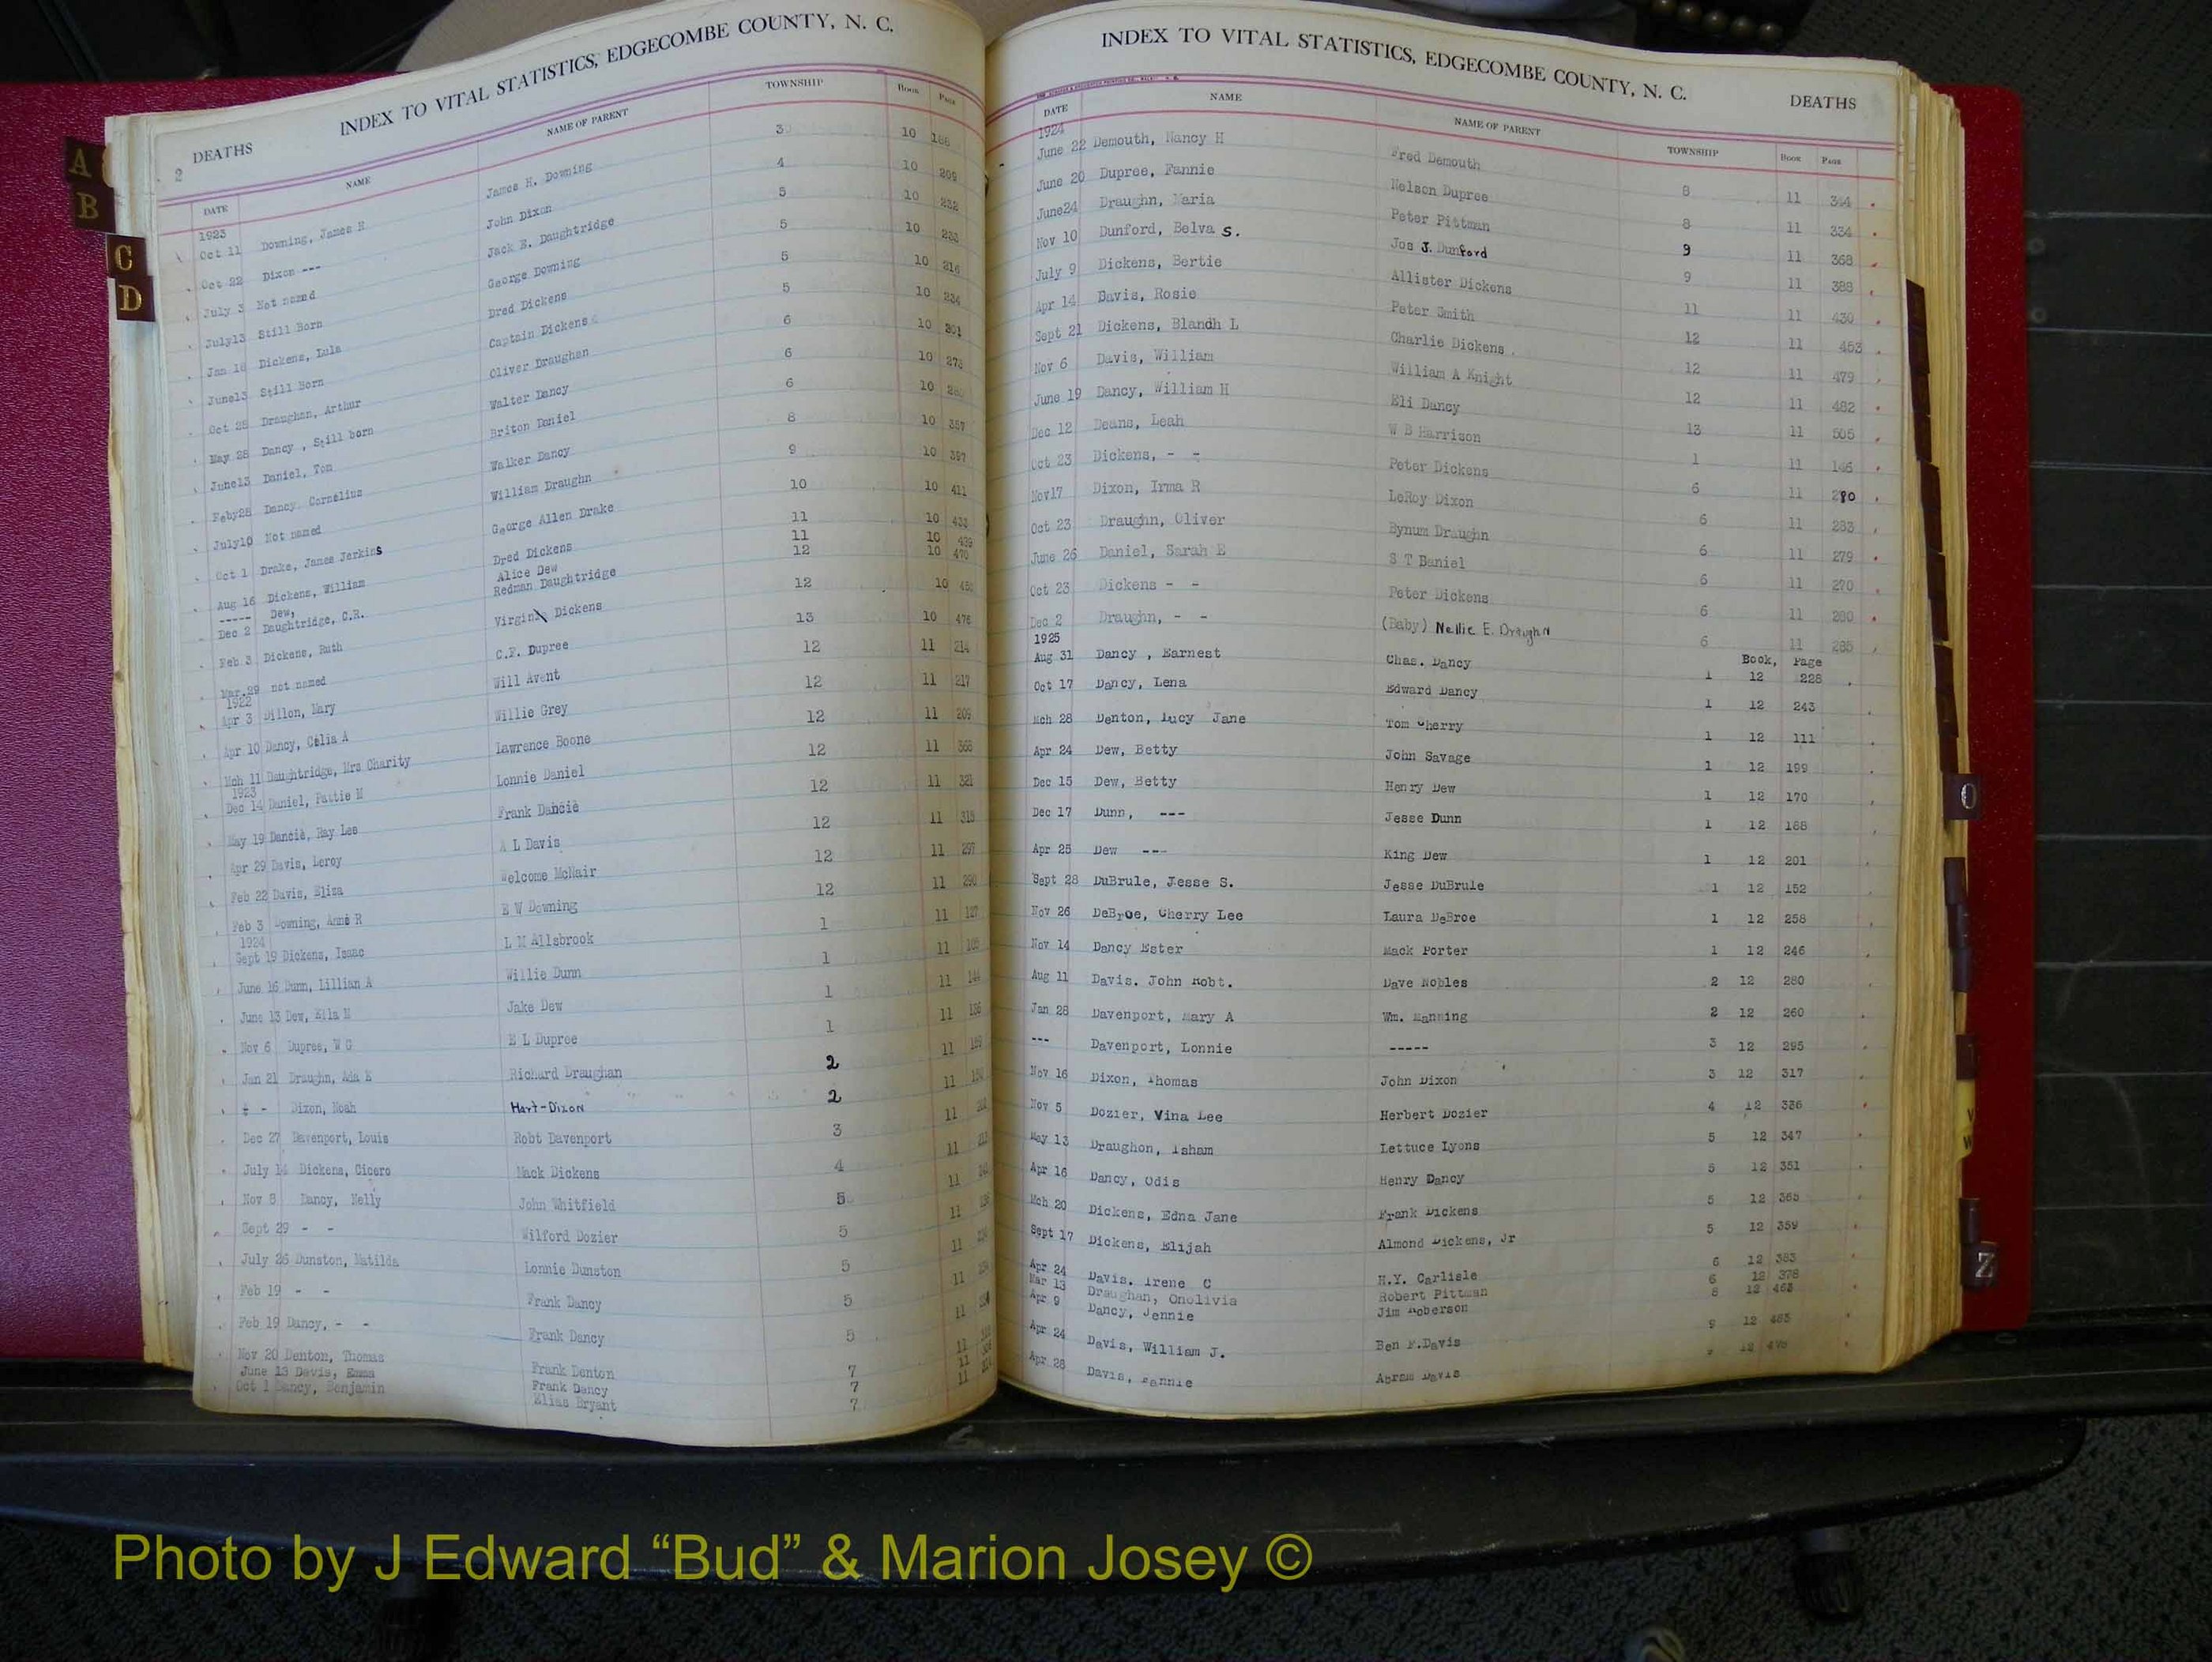 A
B
C
D
INDEX TO VITAL STATISTICS, EDGECOMBE COUNTY, N. C.
2 DEATHS
DATE NAME NAME OF PARENT TOWNSHIP BOOK PAGE
1923
Oct 11 Downing, James H James H. Downing 3 10 188
Oct 22 Dixon --- John Dixon 4 10 209
July 3 Not named Jack E. Daughtridge 5 10 232
July13 Still Born George Downing 5 10 233
Jan 18 Dickens, Lula Dred Dickens 5 10 216
June13 Still Born Captain Dickens 5 10 234
Oct 28 Draughan, Arthur Oliver Draughan 6 10
May 28 Dancy , Still born Walter Dancy 6 10 273
June13 Daniel, Tom Briton Daniel 6 10
Feby28 Dancy Cornelius Walker Dancy 8 10 357
July10 Not named William Draughn 9 10 397
Oct 1 Drake, James Jerkins George Allen Drake 10 10 411
Aug 16 Dickens, William Dred Dickens 11 10
----- Dew, Alice Dew 11 10
Dec 2 Daughtridge, C.R. Redman Daughtridge 12 10 470
Feb 3 Dickens, Ruth Virgini Dickens 12 10
Mar 29 not named C.F. Dupree 13 10 476
1922
Apr 3 Dillon, Mary Will Avent 12 11 214
Apr 10 Dancy, Celia A Willie Grey 12 11 217
Mch 11 Daughtridge, Mrs Charity Lawrence Boone 12 11 209
1923
Dec 14 Daniel, Pattie M Lonnie Daniel 12 11
May 19 Dancie, Ray Lee Frank Dancie 12 11 321
Apr 29 Davis, Leroy A L Davis 12 11 315
Feb 22 Davis, Eliza Welcome McNair 12 11 297
Feb 3 Downing, Anne R E W Downing 12 11
1924
Sept 19 Dickens, Isaac L M Allsbrook 1 11 127
June 16 Dunn, Lillian A Willie Dunn 1 11 105
June 13 Dew, Ella M Jake Dew 1 11 144
Nov 6 Dupree, W G E L Dupree 1 11
Jan 21 Draughn, Ada E Richard Draughan 2 11
- Dixon, Noah Hart-Dixon 2 11
Dec 27 Davenport, Louis Robt Davenport 3 11
July 14 Dickens, Cicero Mack Dickens 4 11
Nov 8 Dancy, Nelly John Whitfield 5 11
Sept 29 - - Wilford Dozier 5 11
July 26 Dunston, Matilda Lonnie Dunston 5 11
Feb 19 - - Frank Dancy 5 11
Feb 19 Dancy, - - Frank Dancy 5 11
Nov 20 Denton, Thomas Frank Denton 7 11
June 13 Davis, Emma Frank Dancy 7 11
Oct 1 Dancy, Benjamin Elias Bryant 7 11
INDEX TO VITAL STATISTICS, EDGECOMBE COUNTY, N. C.
DEATHS
DATE NAME NAME OF PARENT TOWNSHIP BOOK PAGE
1924
June 22 Demouth, Nancy H Fred Demouth 8 11 344
June 20 Dupree, Fannie Nelson Dupree 8 11 334
June24 Draughn, Maria Peter Pittman 9 11 368
Nov 10 Dunford, Belva S. Jos J. Dunford 9 11 388
July 9 Dickens, Bertie Allister Dickens 11 11 430
Apr 14 Davis, Rosie Peter Smith 12 11 453
Sept 21 Dickens, Blandh L Charlie Dickens 12 11 479
Nov 6 Davis, William William A Knight 12 11 482
June 19 Dancy, William H Eli Dancy 13 11 505
Dec 12 Deans, Leah W B Harrison 1 11 146
Oct 23 Dickens, - - Peter Dickens 6 11 280
Nov17 Dixon, Irma R LeRoy Dixon 6 11 283
Oct 23 Draughn, Oliver Bynum Draughn 6 11 279
June 26 Daniel, Sarah E S T Daniel 6 11 270
Oct 23 Dickens - - Peter Dickens 6 11 280
Dec 2 Draughn, - - (Baby) Nellie E. Draughn 6 11 285
1925 Book, Page
Aug 31 Dancy , Earnest Chas. Dancy 1 12 228
Oct 17 Dancy, Lena Edward Dancy 1 12 243
Mch 28 Denton, Lucy Jane Tom Cherry 1 12 111
Apr 24 Dew, Betty John Savage 1 12 199
Dec 15 Dew, Betty Henry Dew 1 12 170
Dec 17 Dunn, --- Jesse Dunn 1 12 188
Apr 25 Dew --- King Dew 1 12 201
Sept 28 DuBrule, Jesse S. Jesse DuBrule 1 12 152
Nov 26 DeBroe, Cherry Lee Laura DeBroe 1 12 258
Nov 14 Dancy Ester Mack Porter 1 12 246
Aug 11 Davis. John Robt. Dave Nobles 2 12 280
Jan 28 Davenport, Mary A Wm. Manning 2 12 260
--- Davenport, Lonnie ----- 3 12 295
Nov 16 Dixon, Thomas John Dixon 3 12 317
Nov 5 Dozier, Vina Lee Herbert Dozier 4 12 336
May 13 Draughon, Isham Lettuce Lyons 5 12 347
Apr 16 Dancy, Odis Henry Dancy 5 12 351
Mch 20 Dickens, Edna Jane Frank Dickens 5 12 365
Sept 17 Dickens, Elijah Almond Dickens, Jr 5 12 359
Apr 24 Davis. Irene C H.Y. Carlisle 6 12 383
Mar 13 Draughan, Onolivia Robert Pittman 6 12 378
Apr 9 Dancy, Jennie Jim Roberson 8 12 463
Apr 24 Davis, William J. Ben F.Davis 9 12 485
Apr 28 Davis, Fannie Abram Davis 9 12
O
V
W
Z
Photo by J Edward “Bud” & Marion Josey ©